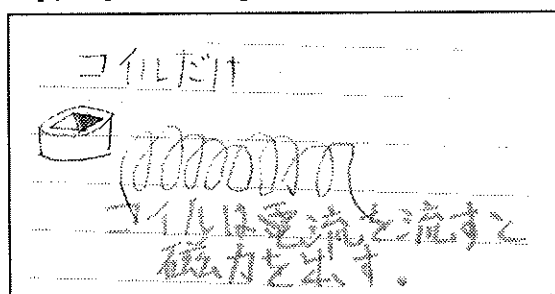 コイルだけ
コイルは電流を流すと
磁力を出す。